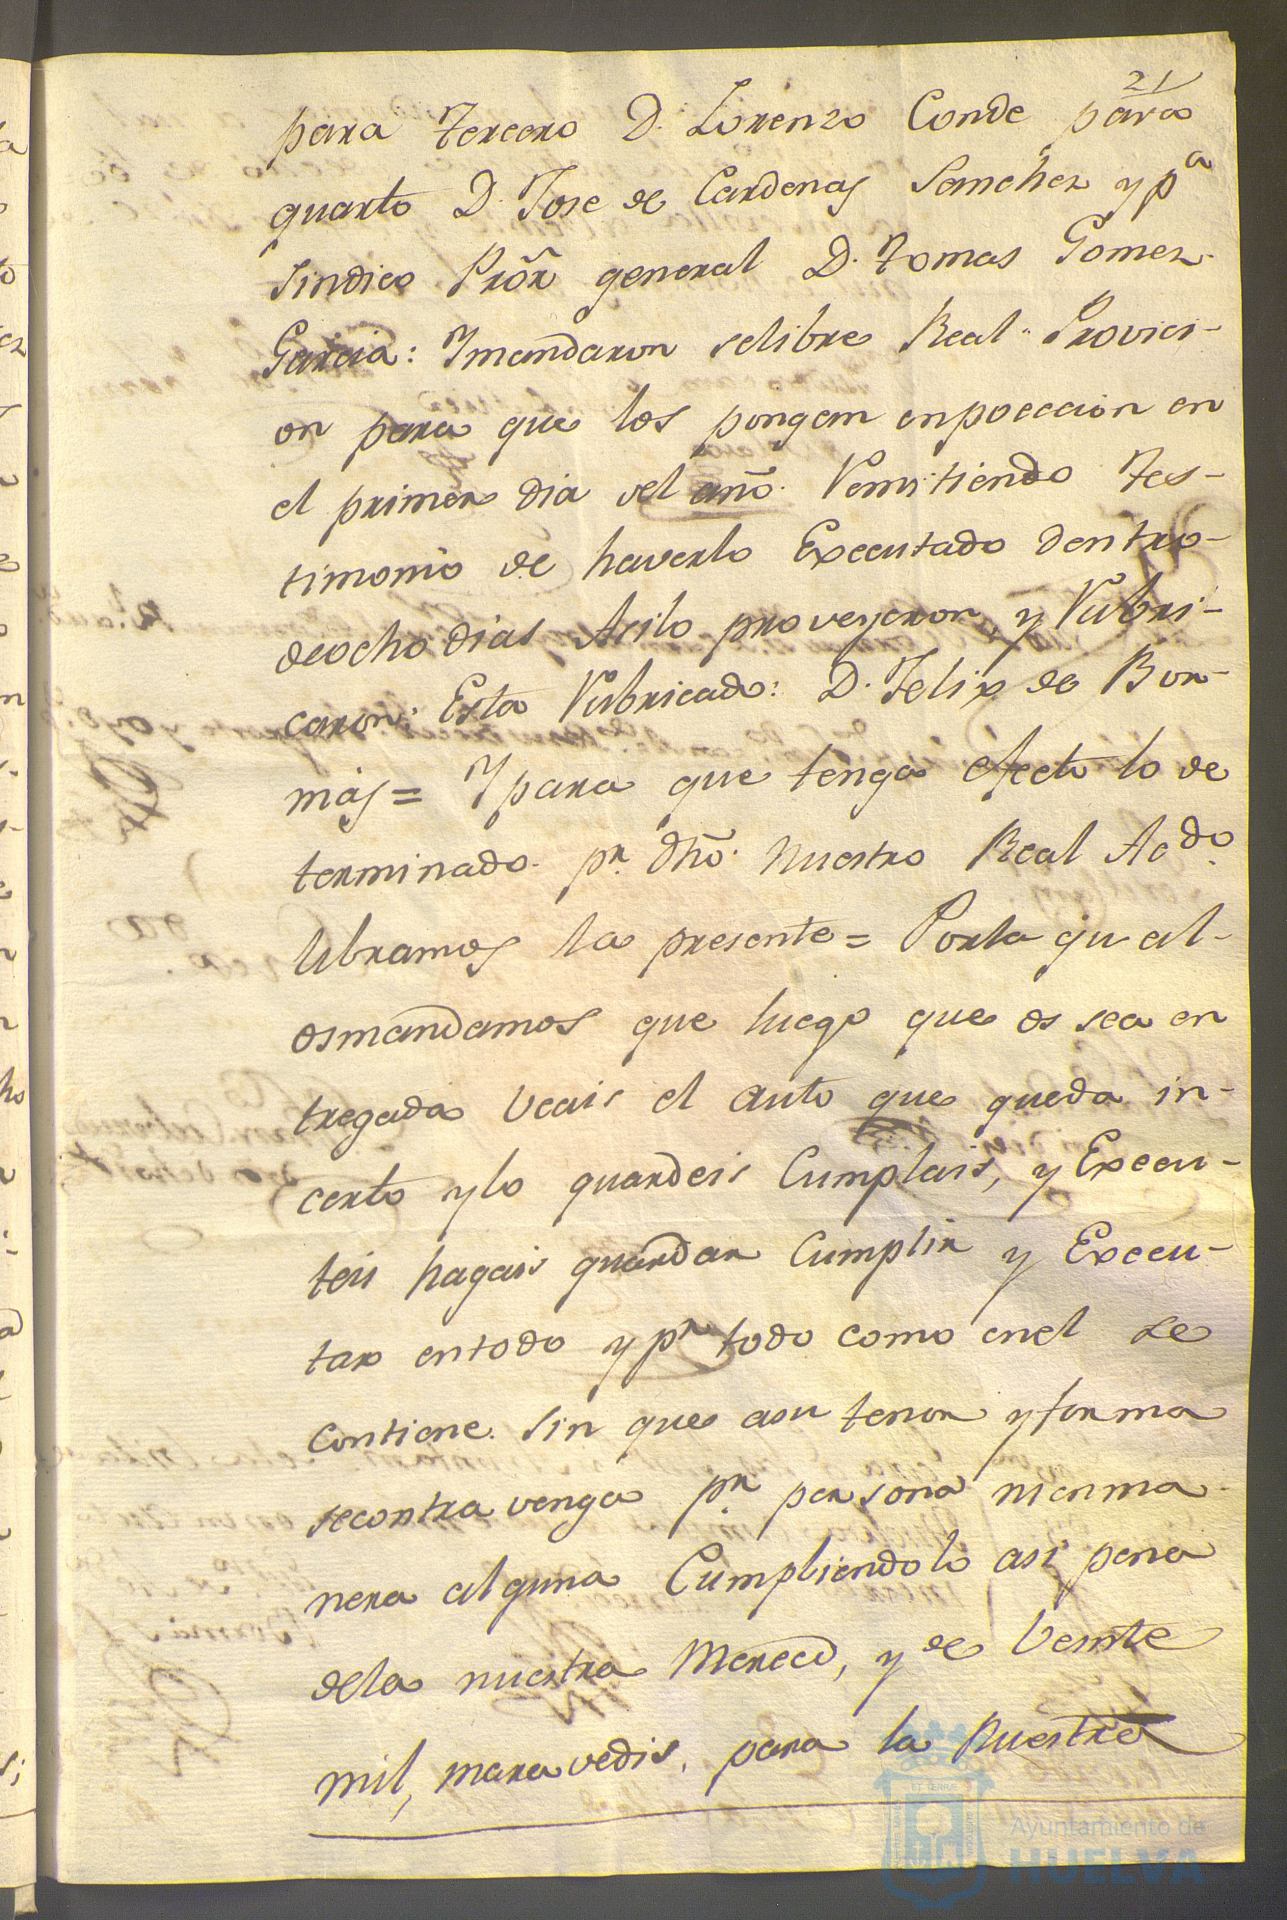 21
para tercero D. Lorenzo Conde para
quarto D. Jose de Cardenas Sanchez y pª
Sindico Prõr general D. Tomas Gomez
Garcia: Ymandaron selibre Real Provici-
on para que los pongan enpoeccion en
el primer dia del año. Remitiendo tes-
timonio de haverlo Executado dentro
deocho dias Asilo proveyeron, y Rubri-
caron. Esta Rubricado: D. Felix de Bor-
mas = Y para que tenga efecto lo de
terminado pr. dho. nuestro Real Acdo.
libramos la presente = Porla qual
osmandamos que luego que os sea en
tregada veais el auto que queda in-
certo ylo guardeis Cumplais, y Execu-
teis hagais guardar Cumplir y Execu-
tar entodo y pr todo como enel se
contiene. Sin que asu tenor yforma
secontra venga pr. persona nienma
nera alguna Cumpliendolo asi pena
dela nuestra Merced, y de Veinte
mil, maravedis, para la Nuestra
Ayuntamiento de
HUELVA